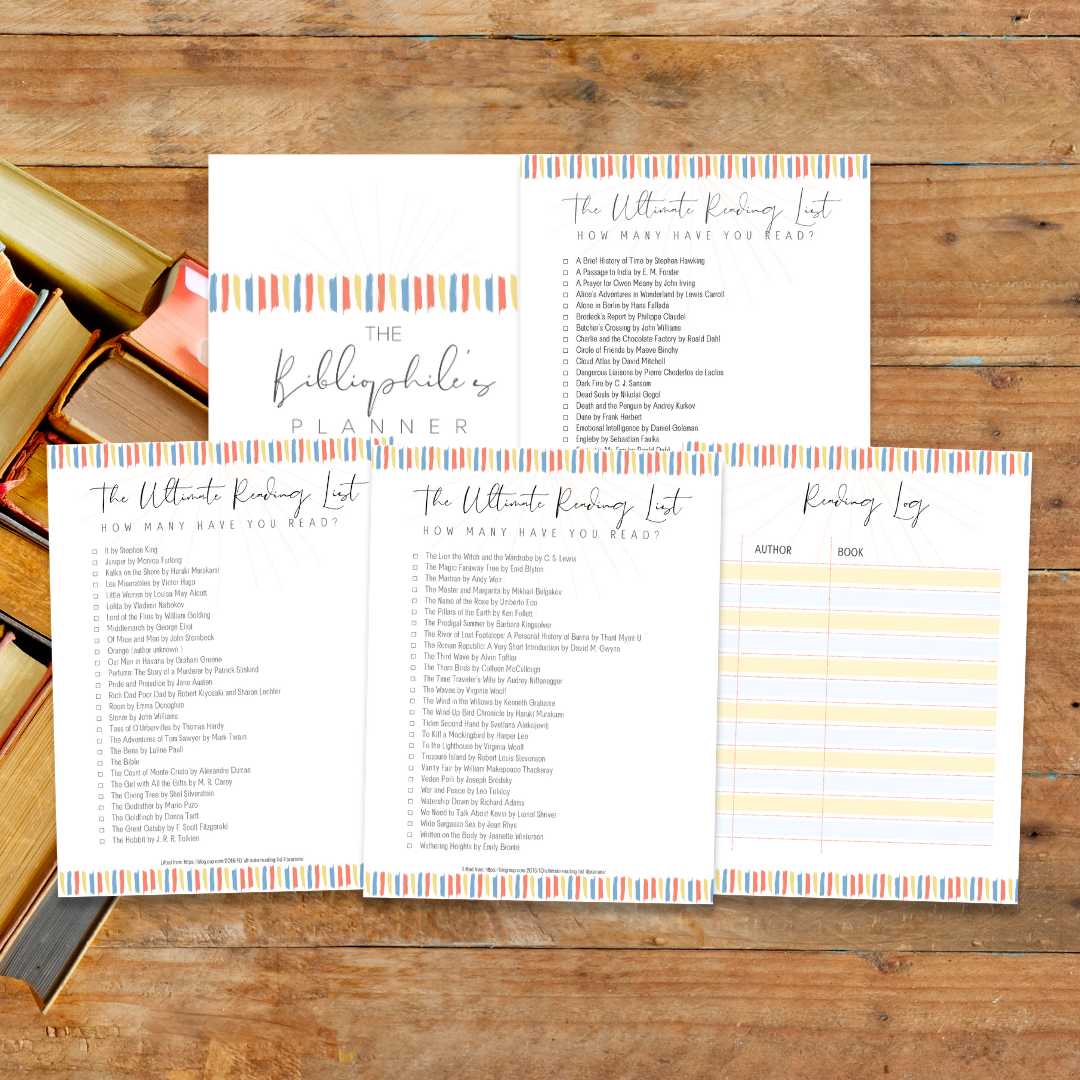 THE
Bibliophile's
PLANNER
The Ultimate Reading List
HOW MANY HAVE YOU READ?
A Brief History of Time by Stephen Hawking
A Passage to India by E. M. Forster
A Prayer for Owen Meany by John Irving
Alice's Adventures in Wonderland by Lewis Carroll
Alone in Berlin by Hans Fallada
Brodeck's Report by Philippe Claudel
Butcher's Crossing by John Williams
Charlie and the Chocolate Factory by Roald Dahl
Circle of Friends by Maeve Binchy
Cloud Atlas by David Mitchell
Dangerous Liaisons by Pierre Choderlos de Laclos
Dark Fire by C. J. Sansom
Dead Souls by Nikolai Gogol
Death and the Penguin by Andrey Kurkov
Dune by Frank Herbert
Emotional Intelligence by Daniel Goleman
Engleby by Sebastian Faulks
The Ultimate Reading List
HOW MANY HAVE YOU READ?
It by Stephen King
Juniper by Monica Furlong
Kafka on the Shore by Haruki Murakami
Les Miserables by Victor Hugo
Little Women by Louisa May Alcott
Lolita by Vladimir Nabokov
Lord of the Flies by William Golding
Middlemarch by George Eliot
Of Mice and Men by John Steinbeck
Orange (author unknown )
Our Man in Havana by Graham Greene
Perfume: The Story of a Murderer by Patrick Süskind
Pride and Prejudice by Jane Austen
Rich Dad Poor Dad by Robert Kiyosaki and Sharon Lechter
Room by Emma Donoghue
Stoner by John Williams
Tess of D'Urbervilles by Thomas Hardy
The Adventures of Tom Sawyer by Mark Twain
The Bees by Laline Paull
The Bible
The Count of Monte Cristo by Alexandre Dumas
The Girl with All the Gifts by M. R. Carey
The Giving Tree by Shel Silverstein
The Godfather by Mario Puzo
The Goldfinch by Donna Tartt
The Great Gatsby by F. Scott Fitzgerald
The Hobbit by J. R. R. Tolkien
Lifted from: https://blog.oup.com/2016/10/ultimate-reading-list-librarians/
The Ultimate Reading List
HOW MANY HAVE YOU READ?
The Lion the Witch and the Wardrobe by C. S. Lewis
The Magic Faraway Tree by Enid Blyton
The Martian by Andy Weir
The Master and Margarita by Mikhail Bulgakov
The Name of the Rose by Umberto Eco
The Pillars of the Earth by Ken Follett
The Prodigal Summer by Barbara Kingsolver
The River of Lost Footsteps: A Personal History of Burma by Thant Myint-U
The Roman Republic: A Very Short Introduction by David M. Gwynn
The Third Wave by Alvin Toffler
The Thorn Birds by Colleen McCullough
The Time Traveler's Wife by Audrey Niffenegger
The Waves by Virginia Woolf
The Wind in the Willows by Kenneth Grahame
The Wind-Up Bird Chronicle by Haruki Murakami
Tiden Second Hand by Svetlana Aleksijevitj
To Kill a Mockingbird by Harper Lee
To the Lighthouse by Virginia Woolf
Treasure Island by Robert Louis Stevenson
Vanity Fair by William Makepeace Thackeray
Veden Peili by Joseph Brodsky
War and Peace by Leo Tolstoy
Watership Down by Richard Adams
We Need to Talk About Kevin by Lionel Shriver
Wide Sargasso Sea by Jean Rhys
Written on the Body by Jeanette Winterson
Wuthering Heights by Emily Bronte
Lifted from: https://blog.oup.com/2016/10/ultimate-reading-list-librarians/
Reading Log
AUTHOR BOOK